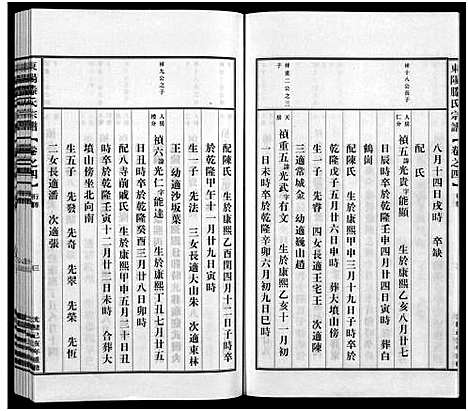 東陽滕氏宗譜【卷之四】行傳
八月十四日戌時 卒缺
配氏
禄十八公長子
人房 仁分
禎五諱光貴字能顯 生於康熙乙亥八月廿七
日辰時卒於乾隆壬申四月廿四日戌時 葬白
鶴崗
配陳氏 生於康熙甲申三月十九日戌時 卒於
乾隆戊子五月廿六日申時 葬大填山傍
生一子 先睿 四女長適王宅王 次適陳
三適常城金 幼適巍山趙
禄重二公之三子
天
禎重五諱光武字有文 生於康熙乙亥十一月初
一日亥時 卒於乾隆辛卯六月初九日巳時
配陳氏 生於康熙乙酉閏四月十二日子時卒
於乾隆甲午十一月廿九日寅時
生一子 先法 三女長適大山朱 次適東林
王 幼適沙坂葉
禄九公子
人房 禮分
禎六諱光仁字能達 生於康熙丁丑七月廿五
日丑時卒於乾隆癸酉三月十八日卯時
配八寺前戚氏 生於康熙甲申五月三十日丑
時 卒於乾隆壬寅十二月廿三日未時 合葬大
填山傍坐北向南
生五子 先發 先奇 先翠 先榮 先恆
二女長適潘 次適張
東陽滕氏宗譜【卷之四】行傳
三